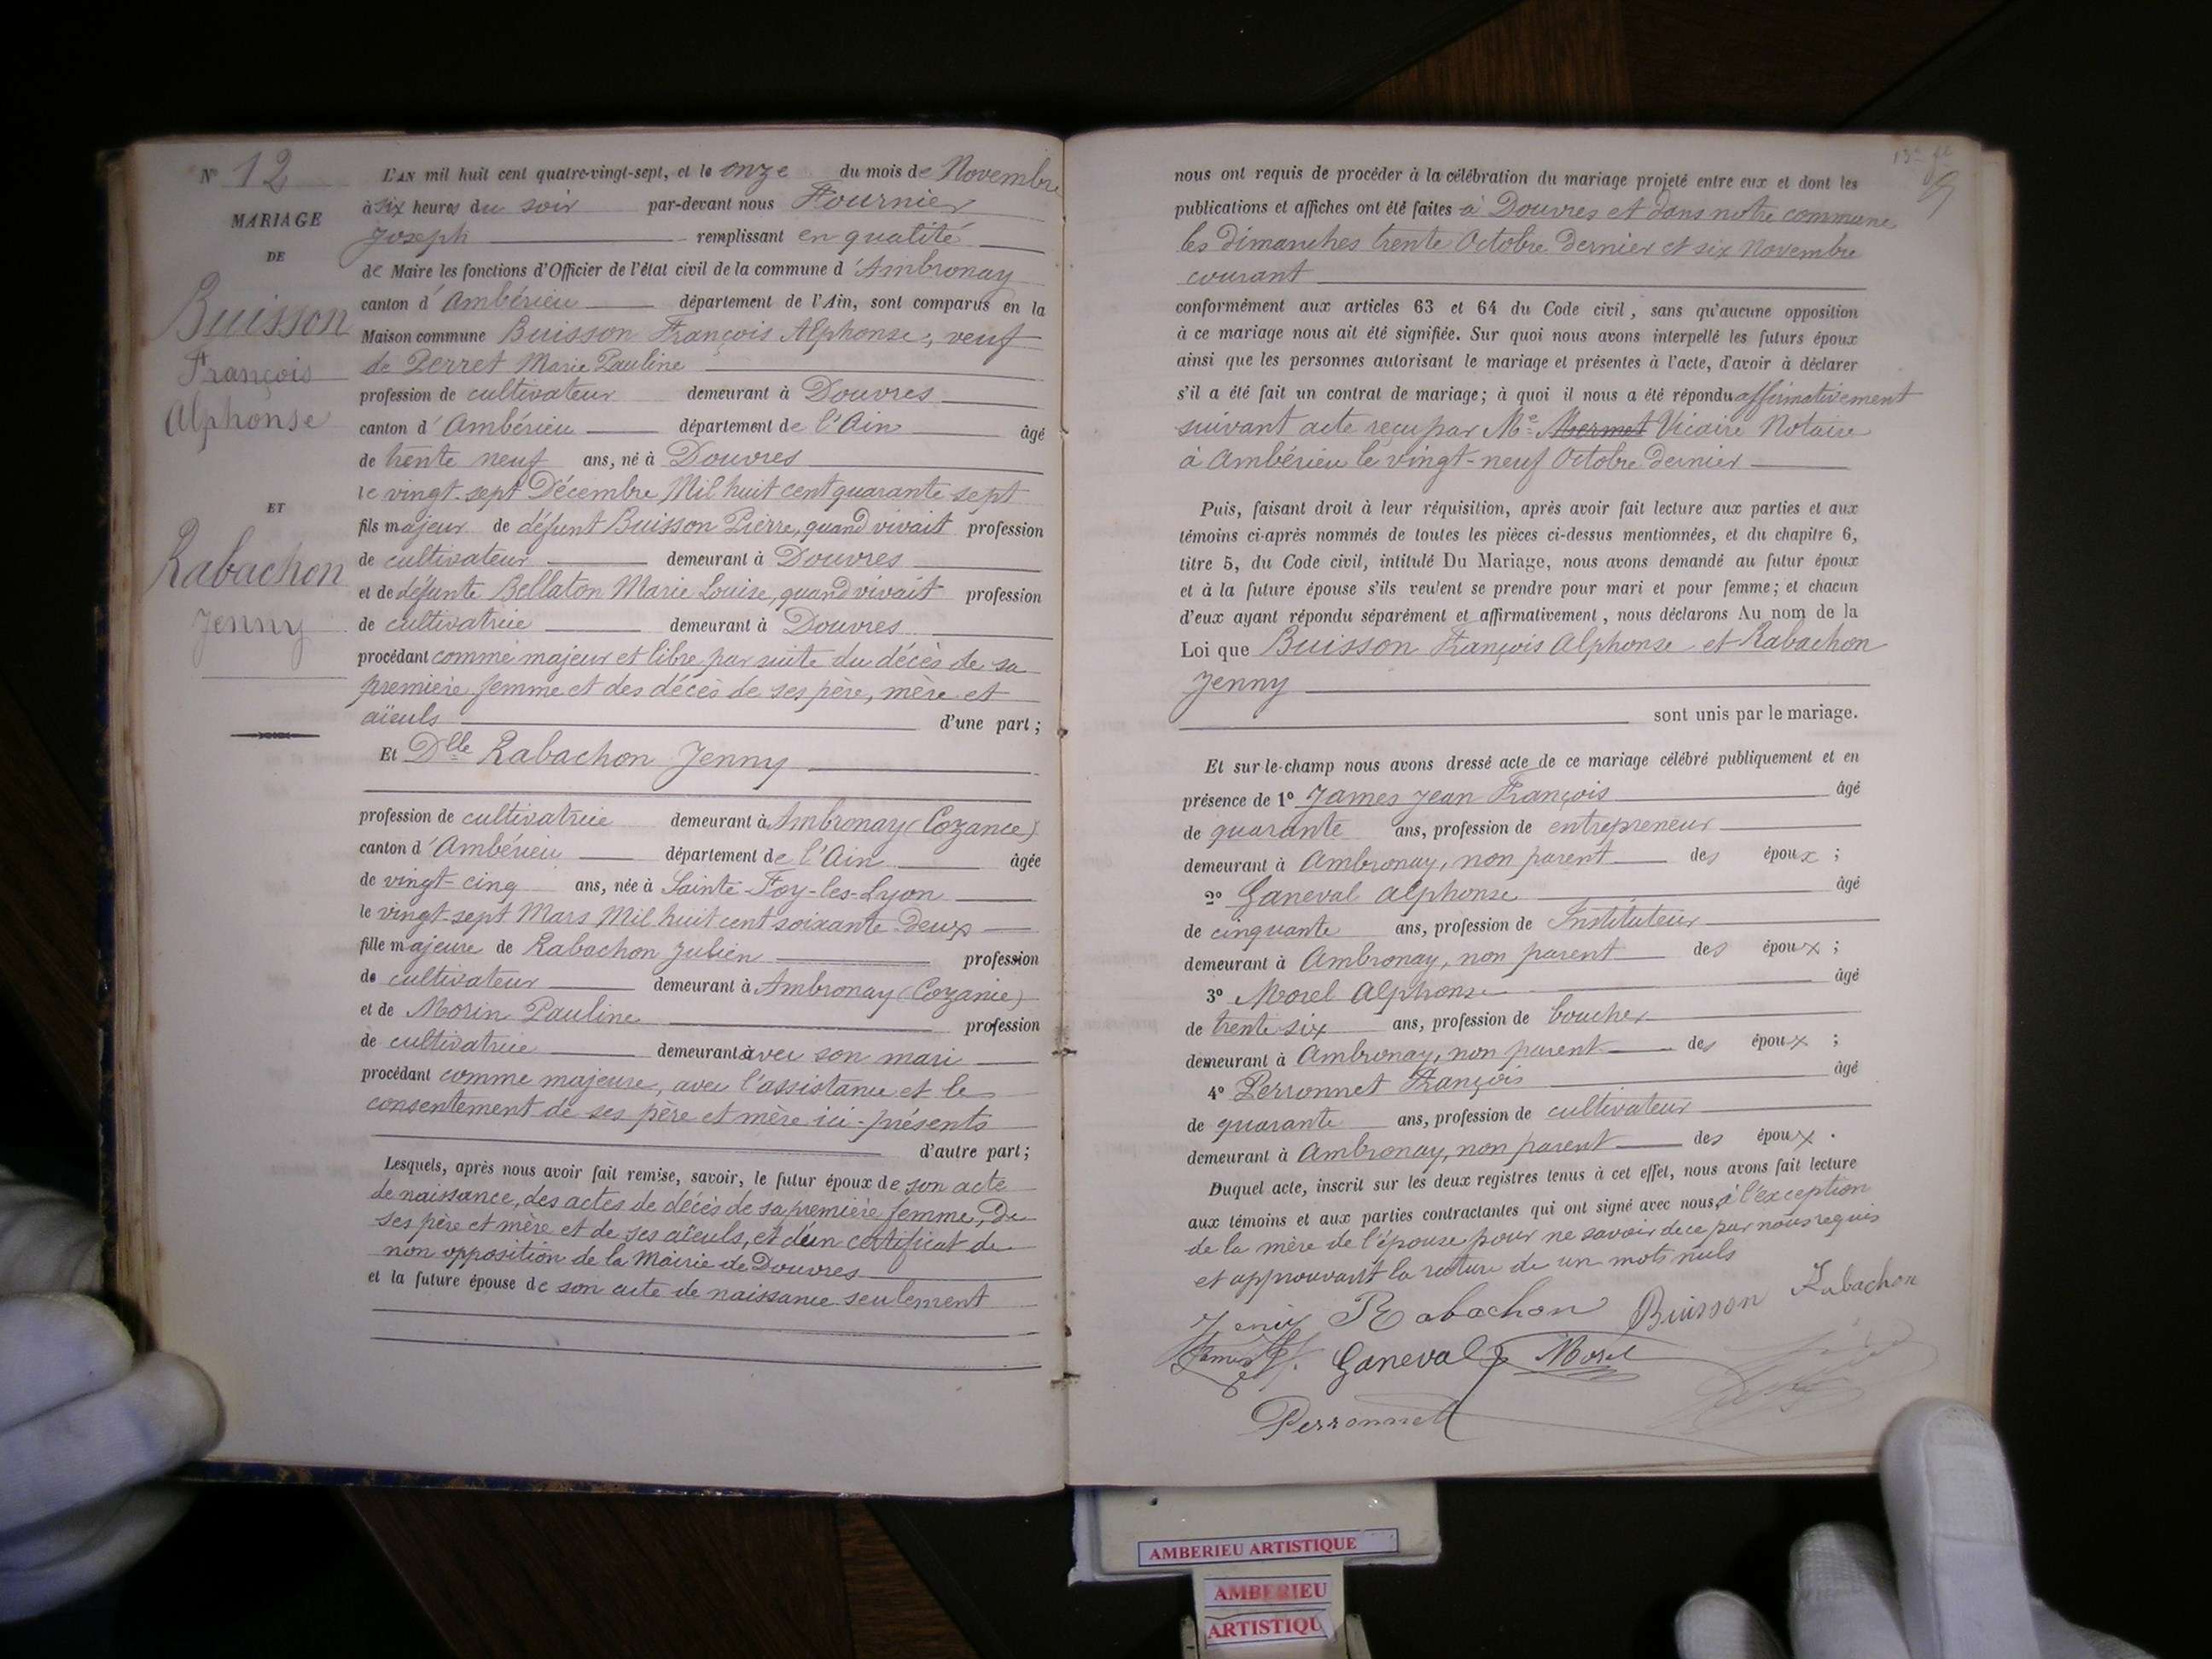 N° 12
MARIAGE
DE
Buisson
François
Alphonse
ET
Rabachon
Jenny
L'AN mil huit cent quatre-vingt-sept, et le onze du mois de Novembre
à six heures du soir par-devant nous Fournier
Joseph remplissant en qualité
de Maire les fonctions d'Officier de l'état civil de la commune d'Ambronay
canton d'Ambérieu département de l'Ain, sont comparus en la
Maison commune Buisson François Alphonse, veuf
de Perret Marie Pauline
profession de cultivateur demeurant à Douvres
canton d'Ambérieu département de l'Ain âgé
de trente neuf ans, né à Douvres
le vingt-sept Décembre Mil huit cent quarante sept
fils majeur de défunt Buisson Pierre, quand vivait profession
de cultivateur demeurant à Douvres
et de défunte Bellaton Marie Louise, quand vivait profession
de cultivatrice demeurant à Douvres
procédant comme majeur et libre par suite du décès de sa
première femme et des décès de ses père, mère et
aïeuls d'une part ;
Et Dlle Rabachon Jenny
profession de cultivatrice demeurant à Ambronay (Cozance)
canton d'Ambérieu département de l'Ain âgée
de vingt-cinq ans, née à Sainte-Foy-les-Lyon
le vingt-sept Mars Mil huit cent soixante Deux
fille majeure de Rabachon Julien profession
de cultivateur demeurant à Ambronay (Cozance)
et de Morin Pauline profession
de cultivatrice demeurant avec son mari
procédant comme majeure, avec l'assistance et le
consentement de ses père et mère ici-présents
d'autre part ;
Lesquels, après nous avoir fait remise, savoir, le futur époux de son acte
de naissance, des actes de décès de sa première femme, De
ses père et mère et de ses aïeuls, et d'un certificat de
non opposition de la Mairie de Douvres
et la future épouse de son acte de naissance seulement
nous ont requis de procéder à la célébration du mariage projeté entre eux et dont les
publications et affiches ont été faites à Douvres et dans notre commune
les dimanches trente Octobre Dernier et six Novembre
courant
conformément aux articles 63 et 64 du Code civil, sans qu'aucune opposition
à ce mariage nous ait été signifiée. Sur quoi nous avons interpellé les futurs époux
ainsi que les personnes autorisant le mariage et présentes à l'acte, d'avoir à déclarer
s'il a été fait un contrat de mariage ; à quoi il nous a été répondu affirmativement
suivant acte reçu par Me Mermet Vicaire Notaire
à Ambérieu le vingt-neuf Octobre Dernier
Puis, faisant droit à leur réquisition, après avoir fait lecture aux parties et aux
témoins ci-après nommés de toutes les pièces ci-dessus mentionnées, et du chapitre 6,
titre 5, du Code civil, intitulé Du Mariage, nous avons demandé au futur époux
et à la future épouse s'ils veulent se prendre pour mari et pour femme ; et chacun
d'eux ayant répondu séparément et affirmativement, nous déclarons Au nom de la
Loi que Buisson François Alphonse et Rabachon
Jenny
sont unis par le mariage.
Et sur-le-champ nous avons dressé acte de ce mariage célébré publiquement et en
présence de 1° James Jean François âgé
de quarante ans, profession de entrepreneur
demeurant à Ambronay, non parent des époux ;
2° Ganeval Alphonse âgé
de cinquante ans, profession de Instituteur
demeurant à Ambronay, non parent des époux ;
3° Morel Alphonse âgé
de trente six ans, profession de boucher
demeurant à Ambronay, non parent des époux ;
4° Perronnet François âgé
de quarante ans, profession de cultivateur
demeurant à Ambronay, non parent des époux .
Duquel acte, inscrit sur les deux registres tenus à cet effet, nous avons fait lecture
aux témoins et aux parties contractantes qui ont signé avec nous, à l'exception
de la mère de l'épouse pour ne savoir de ce par nous requis
et approuvant la rature de un mots nuls
Jeny Rabachon Buisson Rabachon
James Ganeval Morel
Perronnet
AMBERIEU ARTISTIQUE
AMBERIEU
ARTISTIQU